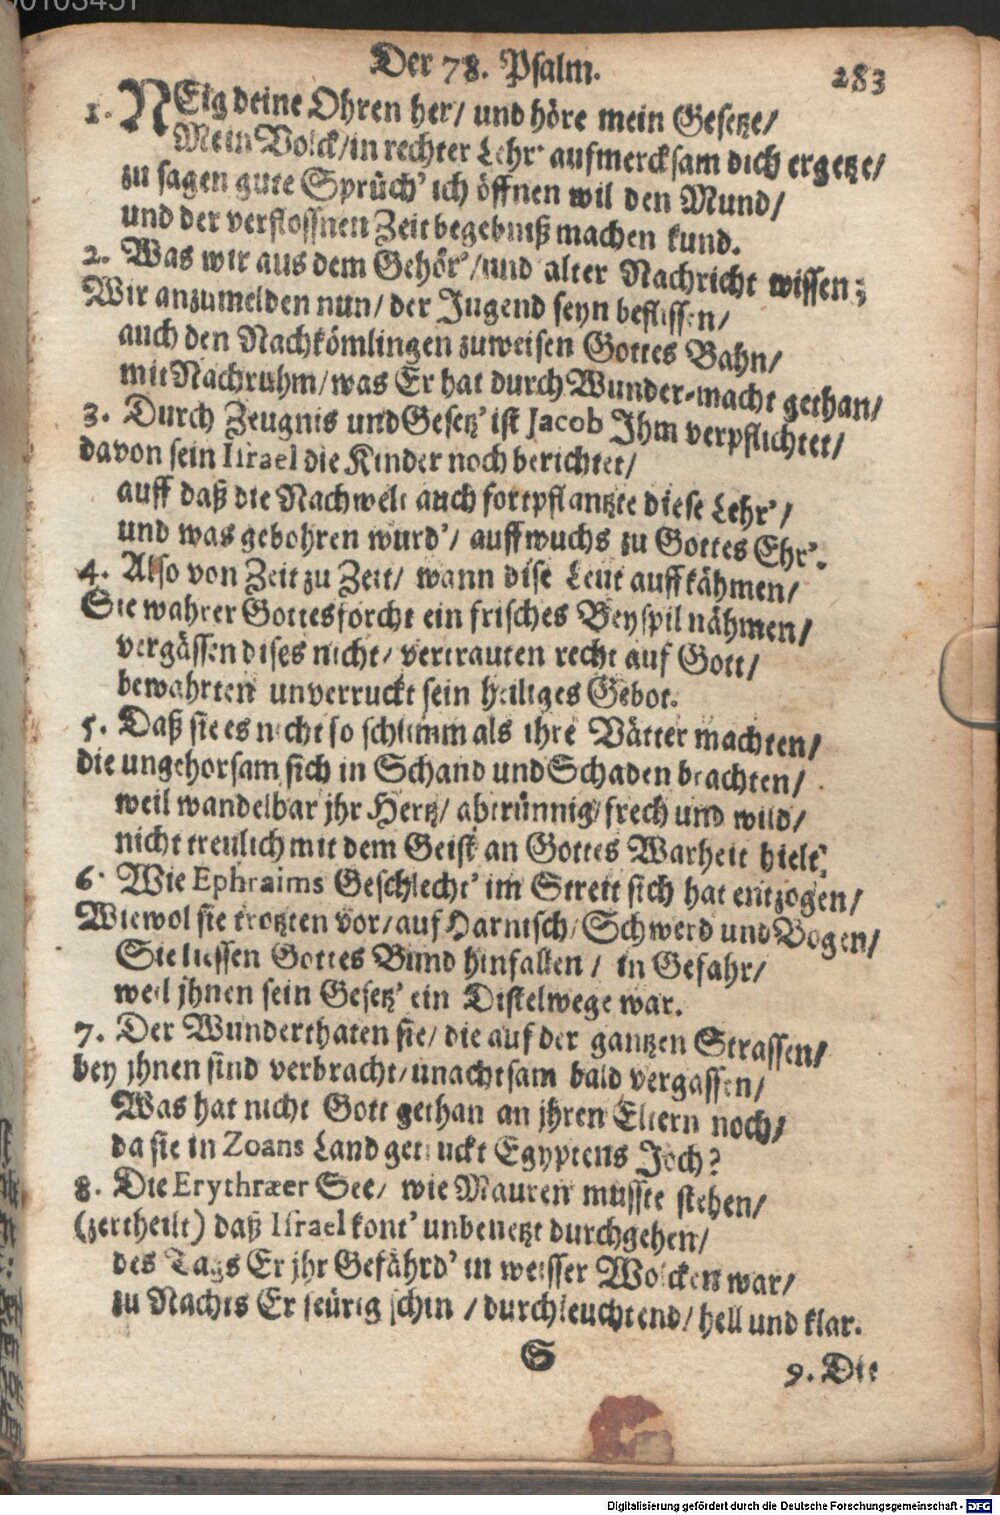 00103451
Der 78. Psalm. 283
1. NEig deine Ohren her/ und höre mein Gesetze/
Mein Volck/in rechter Lehr' aufmercksam dich ergetze/
zu sagen gute Sprüch' ich öffnen wil den Mund/
und der verflossnen Zeit begebniß machen kund.
2. Was wir aus dem Gehör'/und alter Nachricht wissen;
Wir anzumelden nun/ der Jugend seyn beflissen/
auch den Nachkömlingen zuweisen Gottes Bahn/
mit Nachruhm/was Er hat durch Wunder-macht gethan/
3. Durch Zeugnis und Gesetz' ist Jacob Ihm verpflichtet/
davon sein Israel die Kinder noch berichtet/
auff daß die Nachwelt auch fortpflantzte diese Lehr'/
und was gebohren wurd'/ auffwuchs zu Gottes Ehr'.
4. Also von Zeit zu Zeit/ wann dise Leut auffkähmen/
Sie wahrer Gottesforcht ein frisches Beyspil nähmen/
vergässen dises nicht/ vertrauten recht auf Gott/
bewahrten unverruckt sein heiliges Gebot.
5. Daß sie es nicht so schlimm als ihre Vätter machten/
die ungehorsam sich in Schand und Schaden brachten/
weil wandelbar jhr Hertz/ abtrünnig/frech und wild/
nicht treulich mit dem Geist an Gottes Warheit hielt;
6. Wie Ephraims Geschlecht' im Streit sich hat entzogen/
Wiewol sie trotzten vor/auf Harnisch/Schwerd und Bogen/
Sie liessen Gottes Bund hinfallen/ in Gefahr/
weil jhnen sein Gesetz' ein Distelwege war.
7. Der Wunderthaten sie/ die auf der gantzen Strassen/
bey jhnen sind verbracht/unachtsam bald vergassen/
Was hat nicht Gott gethan an jhren Eltern noch/
da sie in Zoans Land getruckt Egyptens Joch?
8. Die Erythræer See/ wie Mauren musste stehen/
(zertheilt) daß Israel kont' unbenetzt durchgehen/
des Tags Er jhr Gefährd' in weisser Wolcken war/
zu Nachts Er feürig schin / durchleuchtend/ hell und klar.
S
9. Die
Digitalisierung gefördert durch die Deutsche Forschungsgemeinschaft - DFG